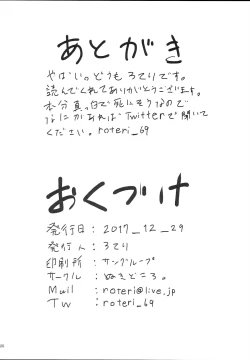 あとがき
やばいっ。どうもろてりです。
読んでくれてありがとうございます。
本分真っ白で死にそうなので
なにかあれば Twitterで聞いて
ください。roteri_69
おくづけ
発行日：2017_12_29
発行人：ろてり
印刷所：サングループ
サークル：ぬきどころ。
Mail：roteri@live.jp
TW：roteri_69